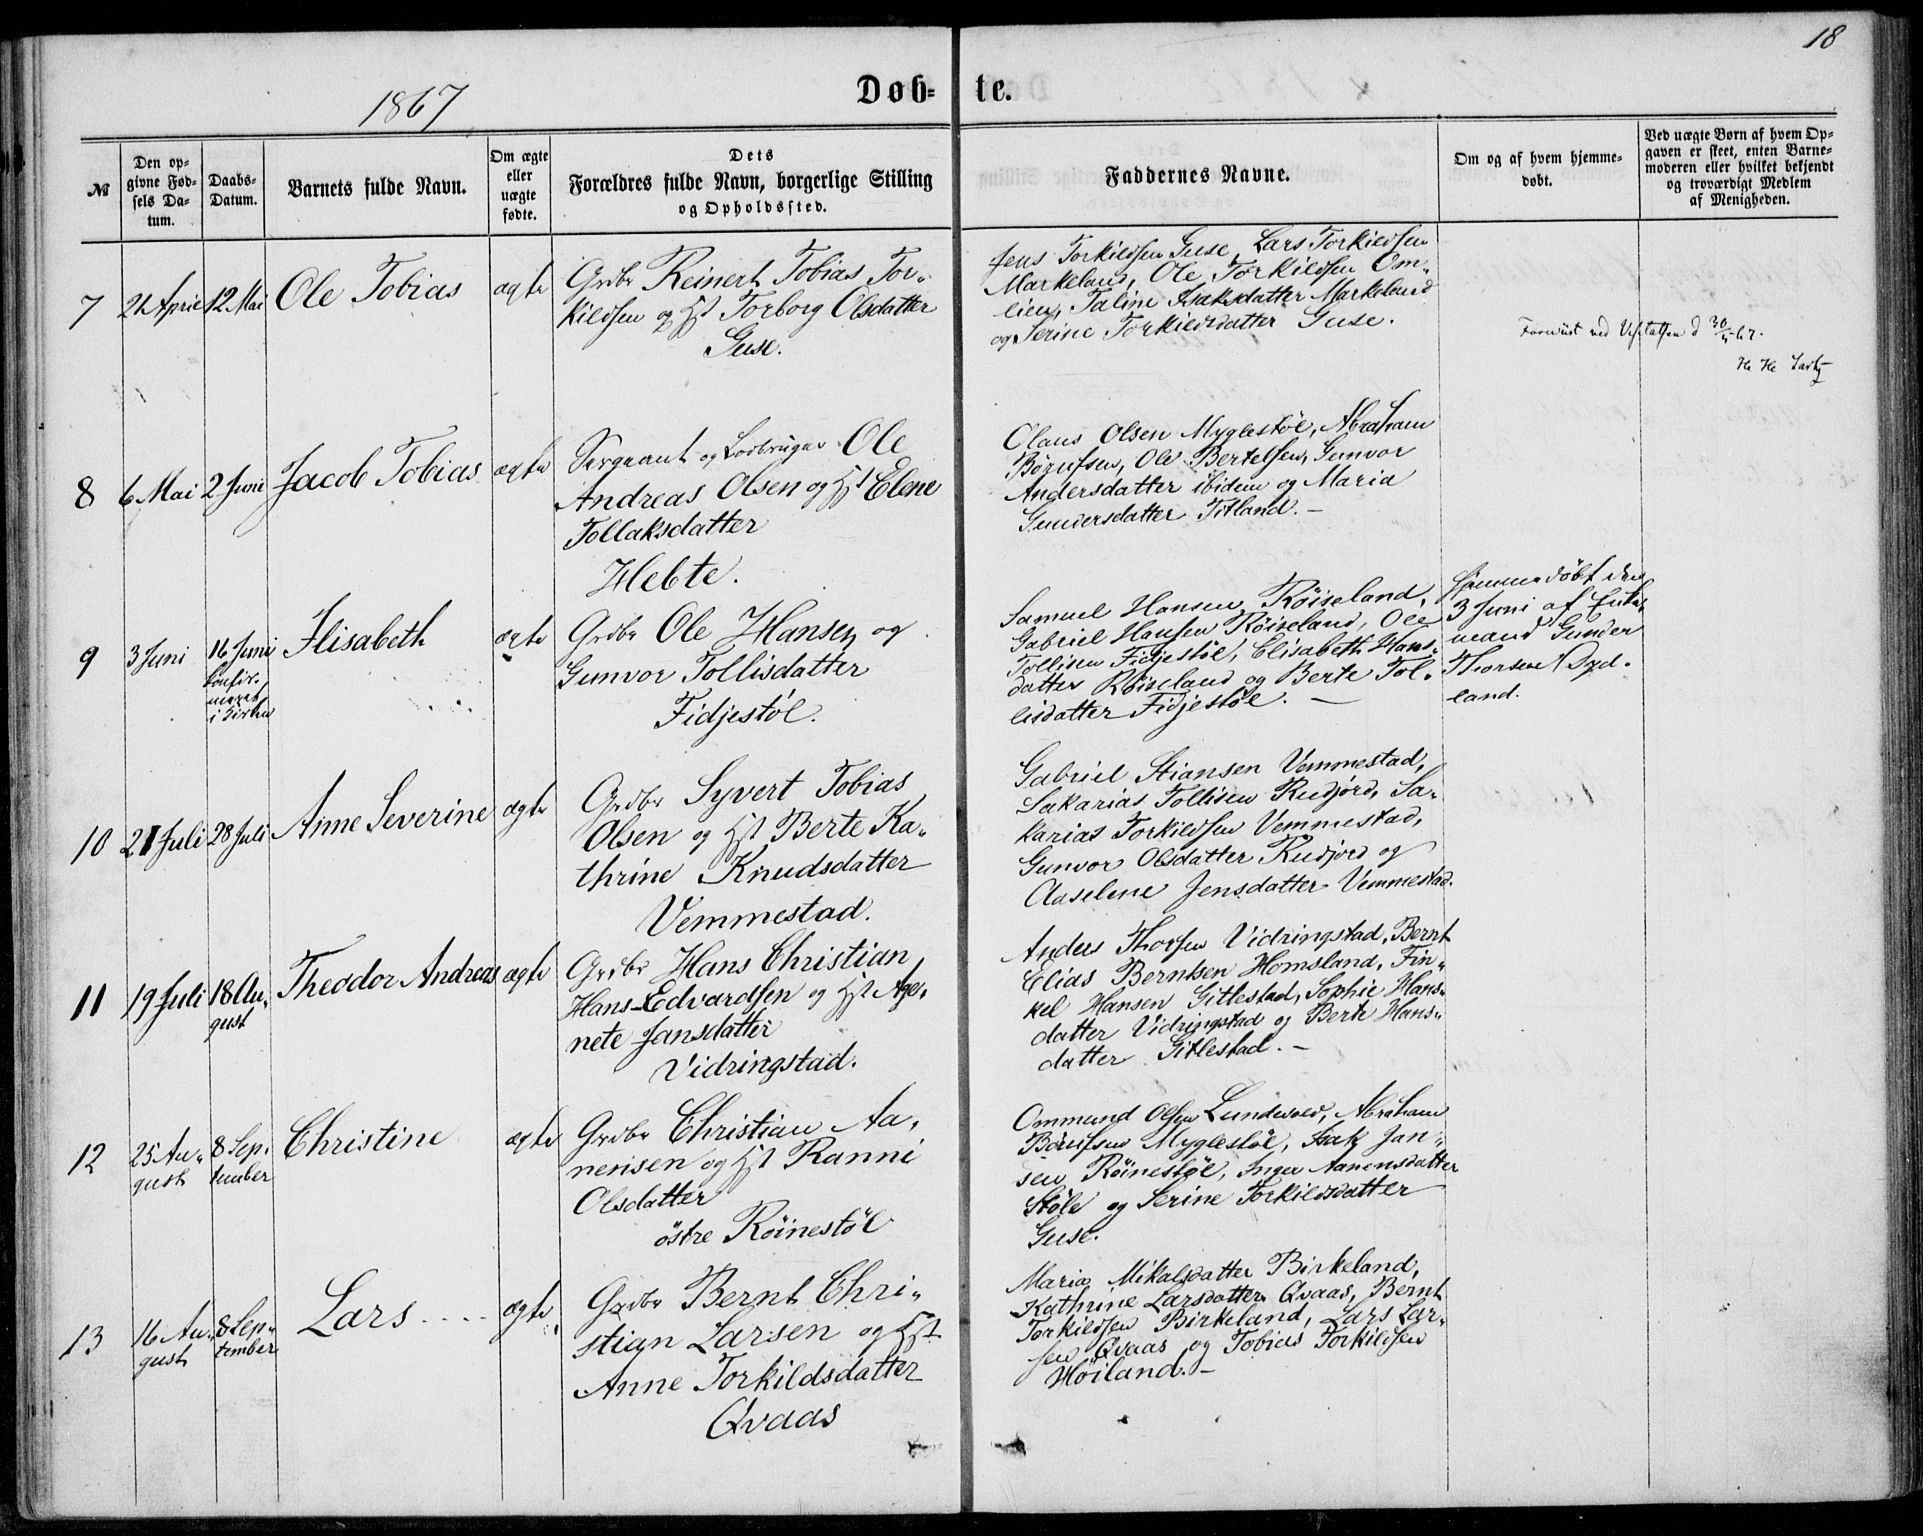 18
1867
Døb-te.
№
Den op-
givne Fød-
sels Da-
tum.
Daabs-
Datum.
Barnets fulde Navn.
Om ægte
eller
uægte
fødte.
Dets
Forældres fulde Navn, borgerlige Stilling
og Opholdssted.
Faddernes Navne.
Om og af hvem hjemme-
døbt.
Ved uægte Børn af hvem Op-
gaven er skeet, enten Barne-
moderen eller hvilket bekjendt
og troværdigt Medlem
af Menigheden.
7
21 April
12 Mai
Ole Tobias
ægte
Grdbr Reinert Tobias Tor-
kildsen og Hst Torborg Olsdatter
Guse.
Jens Torkildsen Guse, Lars Torkildsen
Markeland, Ole Torkildsen Om-
lien, Taline Isaksdatter Markeland
og Serine Torkildsdatter Guse.
ved d 30/5 67.
8
6 Mai
2 Juni
Jacob Tobias
ægte
Sergeant og Lodbruger Ole
Andreas Olsen og Hst Elene
Tollaksdatter
Hebte.
Olaus Olsen Myglestøl, Abraham
Børufsen, Ole Bertelsen, Gunvor
Andersdatter ibidem og Maria
Gundersdatter Titland. -
9
3 Juni
16 Juni
confir-
meret
i Kirken
Elisabeth
ægte
Grdbr Ole Hansen og
Gunvor Tollisdatter
Fidjestøl.
Samuel Hansen Røiseland,
Gabriel Hansen Røiseland, Ole
Tollisen Fidjestøl, Elisabeth Hans-
datter Røiseland og Berte Tol-
lisdatter Fidjestøl. -
Hjemmedøbt den
3 Juni af Enke-
mand Gunder
Thorsen Dyd-
land.
10
21 Juli
28 Juli
Anne Severine
ægte
Grdbr Syvert Tobias
Olsen og Hst Berte Ka-
thrine Knudsdatter
Vemmestad.
Gabriel Stiansen Vemmestad,
Sakarias Tollisen Rudjord, Sa-
karias Torkildsen Vemmestad,
Gunvor Olsdatter Rudjord og
Aaselene Jensdatter Vemmestad.
11
19 Juli
18 Au-
gust
Theodor Andreas
ægte
Grdbr Hans Christian
Hans-Edvardsen og Hst Age-
nete Jansdatter
Vidringstad.
Anders Thorsen Vidringstad, Bernt
Elias Berntsen Homsland, Fin-
kel Hansen Gitlestad, Sophie Hans-
datter Vidringstad og Berte Hans-
datter Gitlestad. -
12
25 Au-
gust
8 Sep-
tember
Christine
ægte
Grdbr Christian Aa-
nensen og Hst Ranni
Olsdatter
østre Røinestøl
Ommund Olsen Lundevold, Abraham
Børufsen Myglestøl, Isak Jan-
sen Røinestøl, Inger Aanensdatter
Støle og Serine Torkildsdatter
Guse.
13
16 Au-
gust
8 Sep-
tember
Lars
ægte
Grdbr Bernt Chri-
stian Larsen og Hst
Anne Torkildsdatter
Qvaas
Maria Mikalsdatter Birkeland,
Kathrine Larsdatter Qvaas, Bernt
Torkildsen Birkeland, Lars Lar-
sen Qvaas og Tobias Torkildsen
Høiland. -